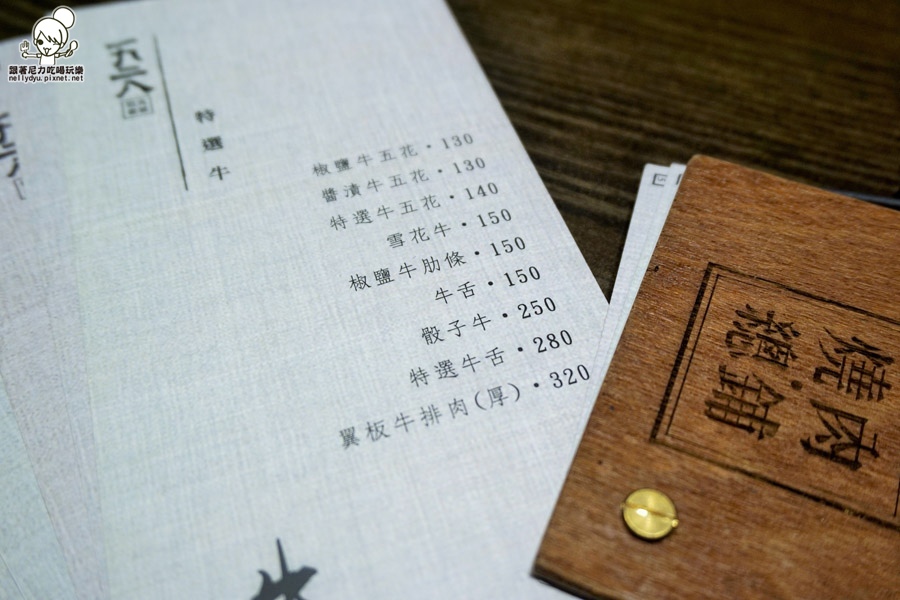 跟著尼力吃喝玩樂
nellydyu.pixnet.net
一五二八
特選牛
椒鹽牛五花・130
醬漬牛五花・130
特選牛五花・140
雪花牛・150
椒鹽牛肋條・150
牛舌・150
骰子牛・250
特選牛舌・280
翼板牛排肉(厚)・320
燒肉
穗・鋪